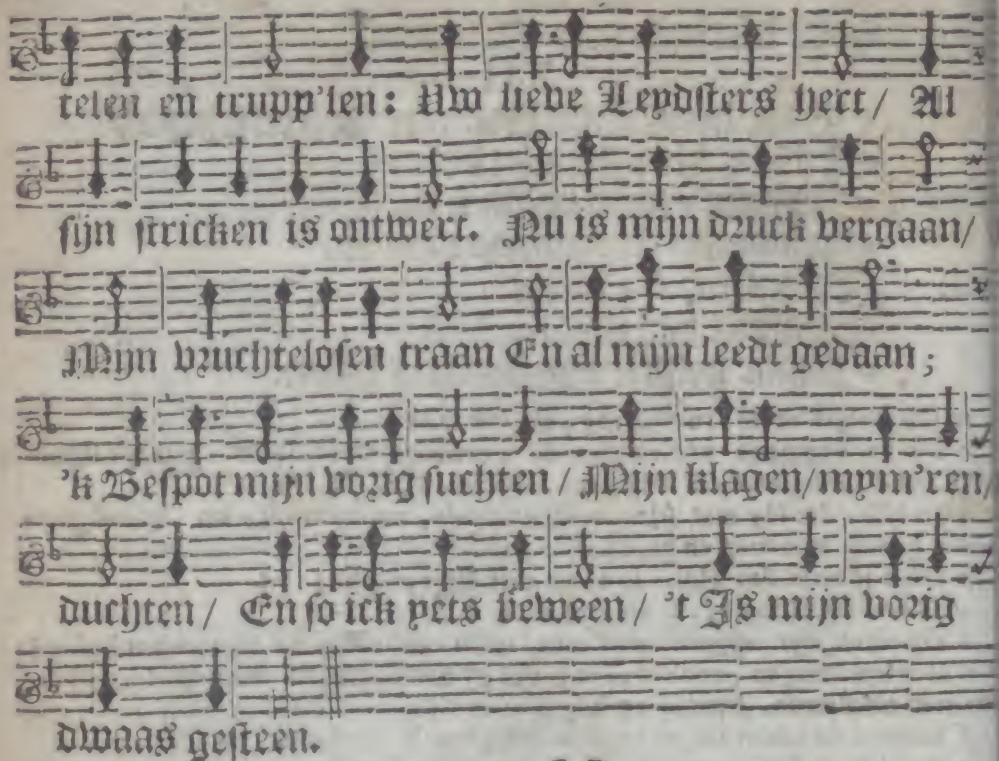 telen en trupp'len: Uw lieve Leydsters hert / Al
sijn stricken is ontwert. Nu is mijn druck vergaan /
Mijn vruchtelosen traan En al mijn leedt gedaan ;
'k Bespot mijn vorig suchten / Mijn klagen / mym'ren /
duchten / En so ick yets beween / 't Is mijn vorig
dwaas gesteen.